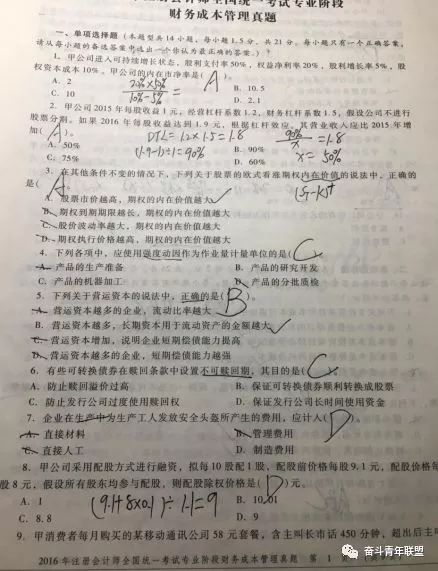 注册会计师全国统一考试专业阶段
财务成本管理真题
一、单项选择题（本题型共14小题，每小题1.5分，共21分。每小题只有一个正确答案，
请从每小题的备选答案中选出一个你认为最正确的答案。）
1. 甲公司进入可持续增长状态，股利支付率50%，权益净利率20%，股利增长率5%，股
权资本成本10%。甲公司的内在市净率是(A)。
A. 2
B. 10.5
C. 10
D. 2.1
2. 甲公司2015年每股收益1元，经营杠杆系数1.2，财务杠杆系数1.5，假设公司不进行
股票分割。如果2016年每股收益达到1.9元，根据杠杆效应。其营业收入应比2015年增
加(A)。
DTL=1.2×1.5=1.8
(1.9-1)÷1=90%
90%/x=1.8
x=50%
A. 50%
B. 90%
C. 75%
D. 60%
3. 在其他条件不变的情况下，下列关于股票的欧式看涨期权内在价值的说法中，正确的
是(A)。
A. 股票市价越高，期权的内在价值越大
B. 期权到期期限越长，期权的内在价值越大
C. 股价波动率越大，期权的内在价值越大
D. 期权执行价格越高，期权的内在价值越大
4. 下列各项中，应使用强度动因作为作业量计量单位的是(C)。
A. 产品的生产准备
B. 产品的研究开发
C. 产品的机器加工
D. 产品的分批质检
5. 下列关于营运资本的说法中，正确的是(B)。
A. 营运资本越多的企业，流动比率越大
B. 营运资本越多，长期资本用于流动资产的金额越大
C. 营运资本增加，说明企业短期偿债能力提高
D. 营运资本越多的企业，短期偿债能力越强
6. 有些可转换债券在赎回条款中设置不可赎回期，其目的是(C)。
A. 防止赎回溢价过高
B. 保证可转换债券顺利转换成股票
C. 防止发行公司过度使用赎回权
D. 保证发行公司长时间使用资金
7. 企业在生产中为生产工人发放安全头盔所产生的费用，应计入(D)。
A. 直接材料
B. 管理费用
C. 直接人工
D. 制造费用
8. 甲公司采用配股方式进行融资，拟每10股配1股，配股前价格每股9.1元，配股价格每
股8元，假设所有股东均参与配股，则配股除权价格是(D)元。
A. 1
(9.1+8×0.1)÷1.1=9
B. 10.01
C. 8.8
D. 9
9. 甲消费者每月购买的某移动通讯公司58元套餐，含主叫长市话450分钟，超出后主叫
2016年注册会计师全国统一考试专业阶段财务成本管理真题 第 1 页
奋斗青年联盟